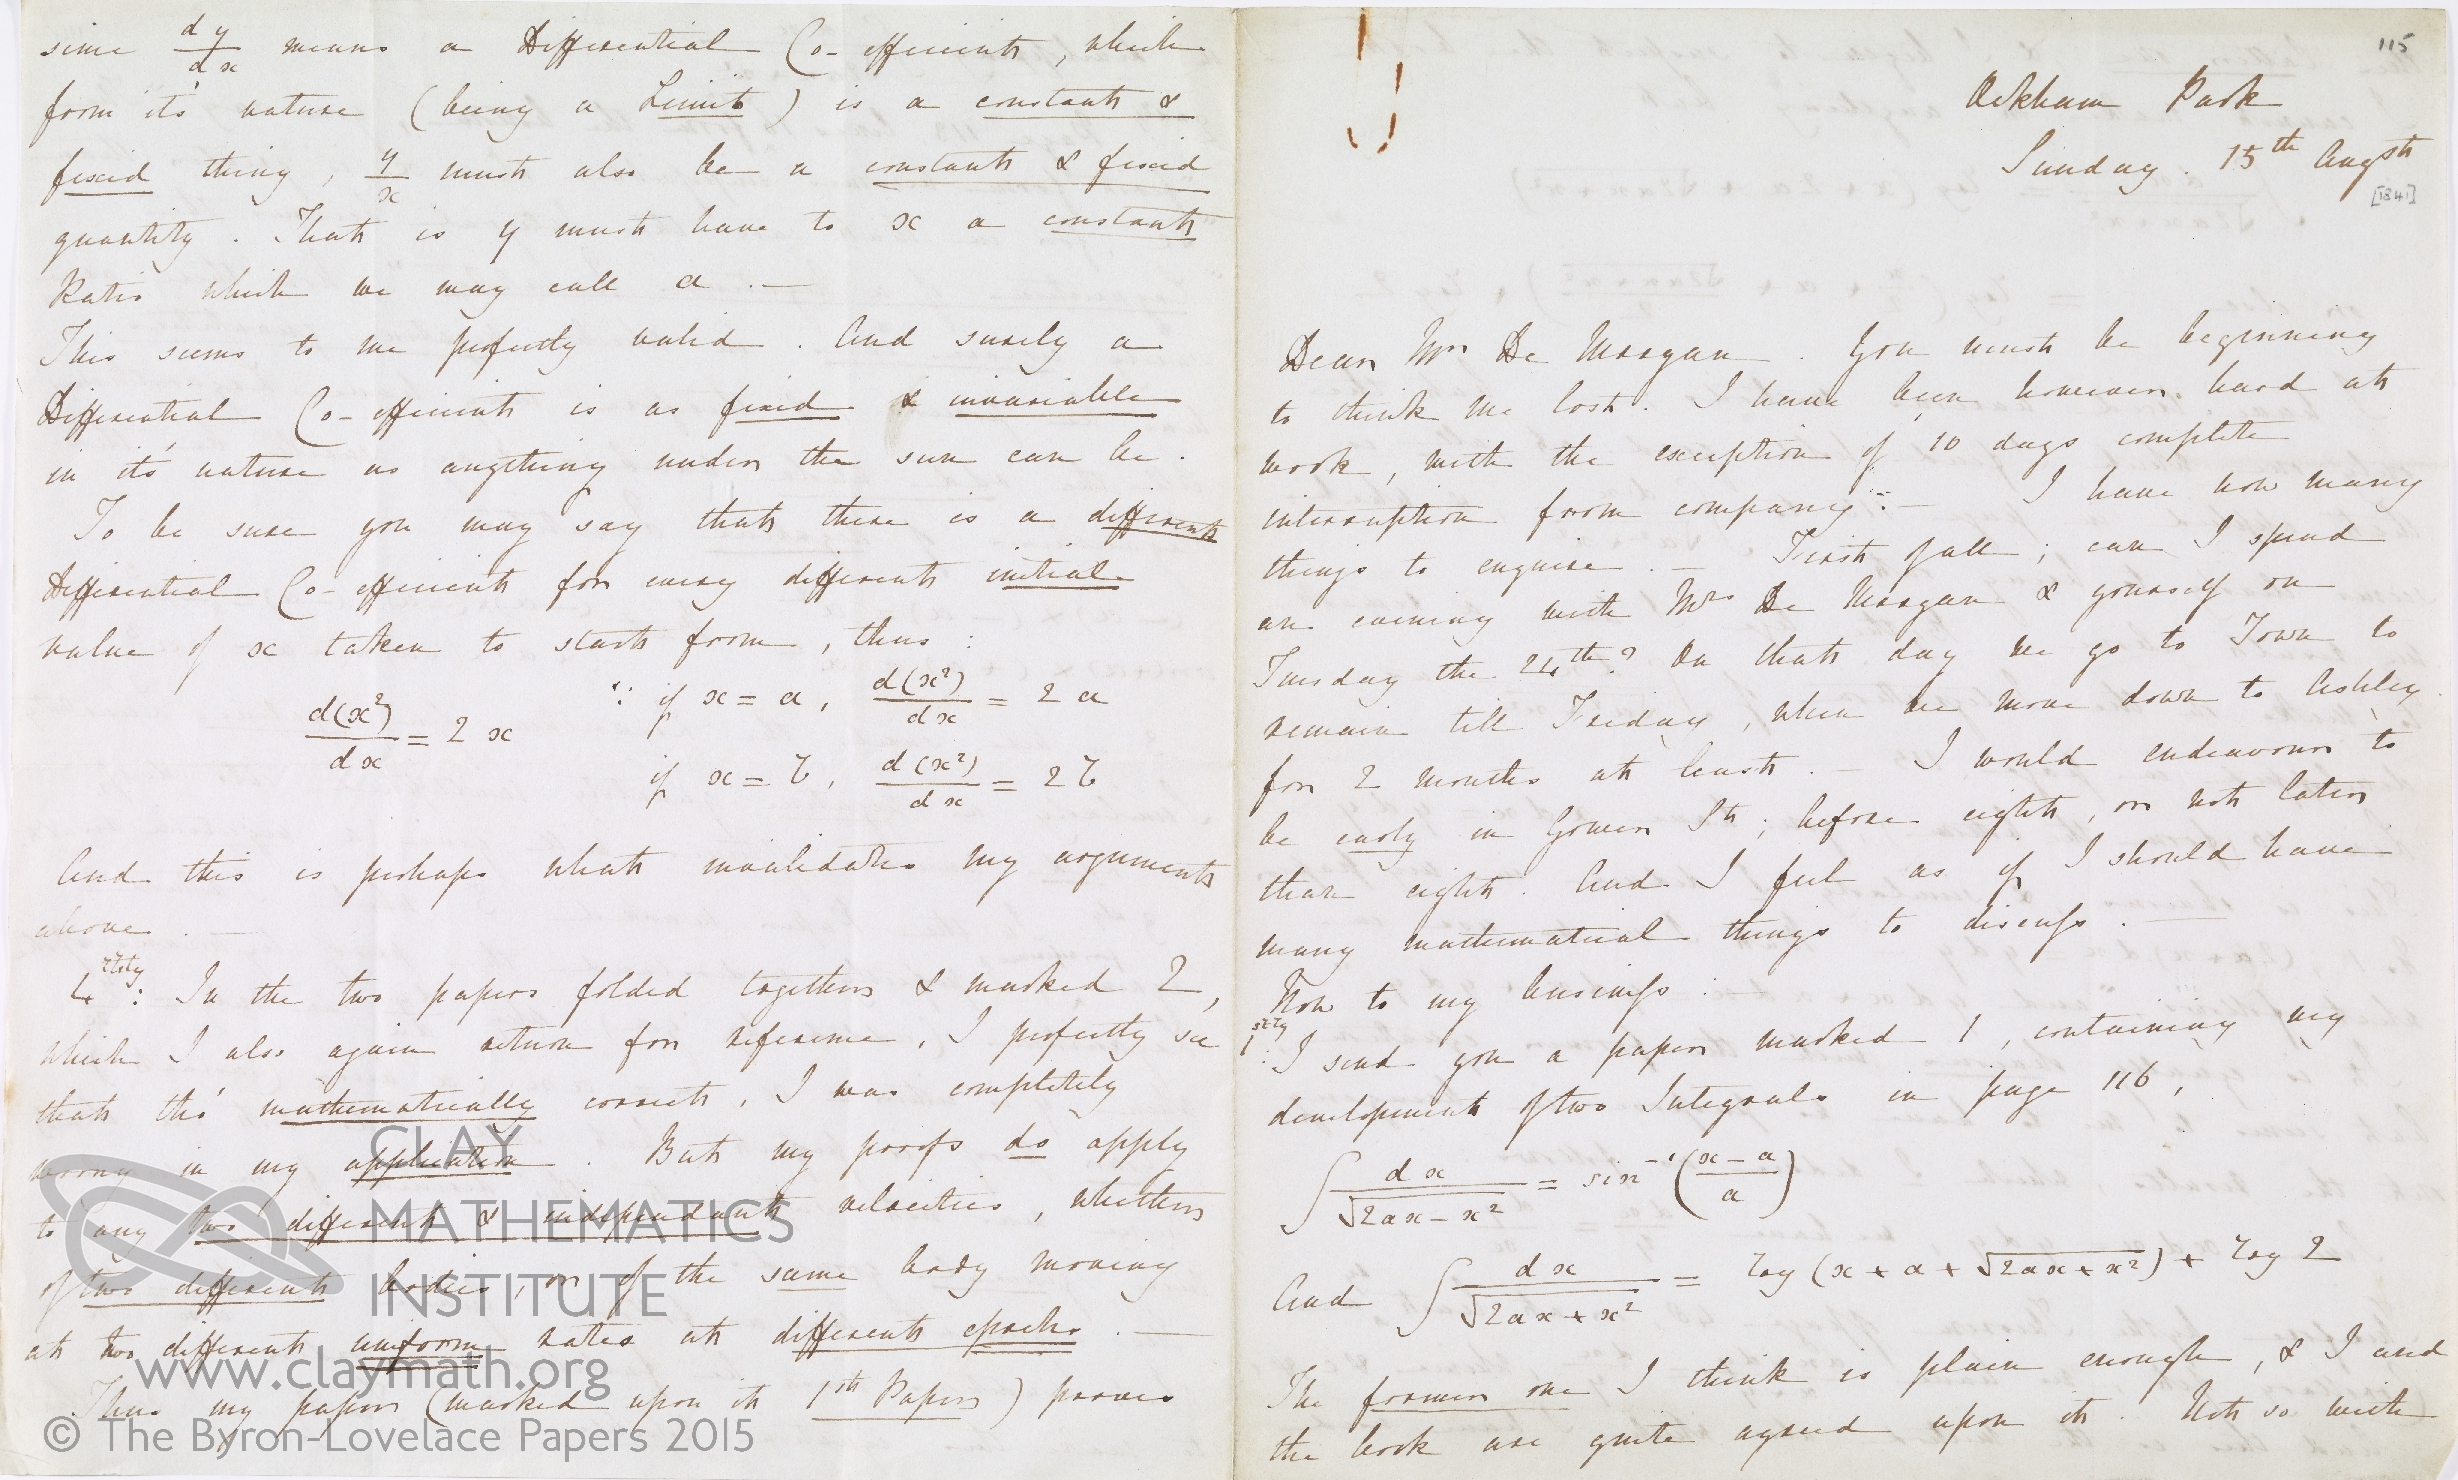 since dy/dx means a Differential Co-efficient, which
from it's nature (being a Limit) is a constant &
fixed thing, y/x must also be a constant & fixed
quantity. That is y must have to x a constant
Ratio which we may call a. —
This seems to me perfectly valid. And surely a
Differential Co-efficient is as fixed & invariable
in it's nature as anything under the sun can be.
To be sure you may say that there is a different
Differential Co-efficient for every different initial
value of x taken to start from, thus:
d(x²)/dx = 2x ∵ if x = a, d(x²)/dx = 2a
if x = b, d(x²)/dx = 2b
And this is perhaps what invalidates my argument
above. —
4thly: In the two papers folded together & marked 2,
which I also again return for reference, I perfectly see
that tho' mathematically correct, I was completely
wrong in my application. But my proofs do apply
to any two different & independent velocities, whether
of two different bodies, or of the same body moving
at two different uniform rates at different epochs. —
Thus my paper (marked upon it 1st Paper) proves
CLAY
MATHEMATICS
INSTITUTE
www.claymath.org
© The Byron-Lovelace Papers 2015
115
Ockham Park
Sunday. 15th Augst
[1841]
Dear Mr De Morgan. You must be beginning
to think me lost. I have been however hard at
work, with the exception of 10 days complete
interruption from company. — I have now many
things to enquire. — First of all; can I spend
an evening with Mrs De Morgan & yourself on
Tuesday the 24th? On that day we go to Town to
remain till Friday, when we move down to Ashley
for 2 months at least. — I would endeavour to
be early in Gower St; before eight, or not later
than eight. And I feel as if I should have
many mathematical things to discuss. —
Now to my business: —
1stly: I send you a paper marked 1, containing my
development of two Integrals in page 116,
∫ dx/√(2ax − x²) = sin⁻¹((x − a)/a)
And ∫ dx/√(2ax + x²) = log (x + a + √(2ax + x²)) + log 2
The former one I think is plain enough, & I and
the book are quite agreed upon it. Not so with